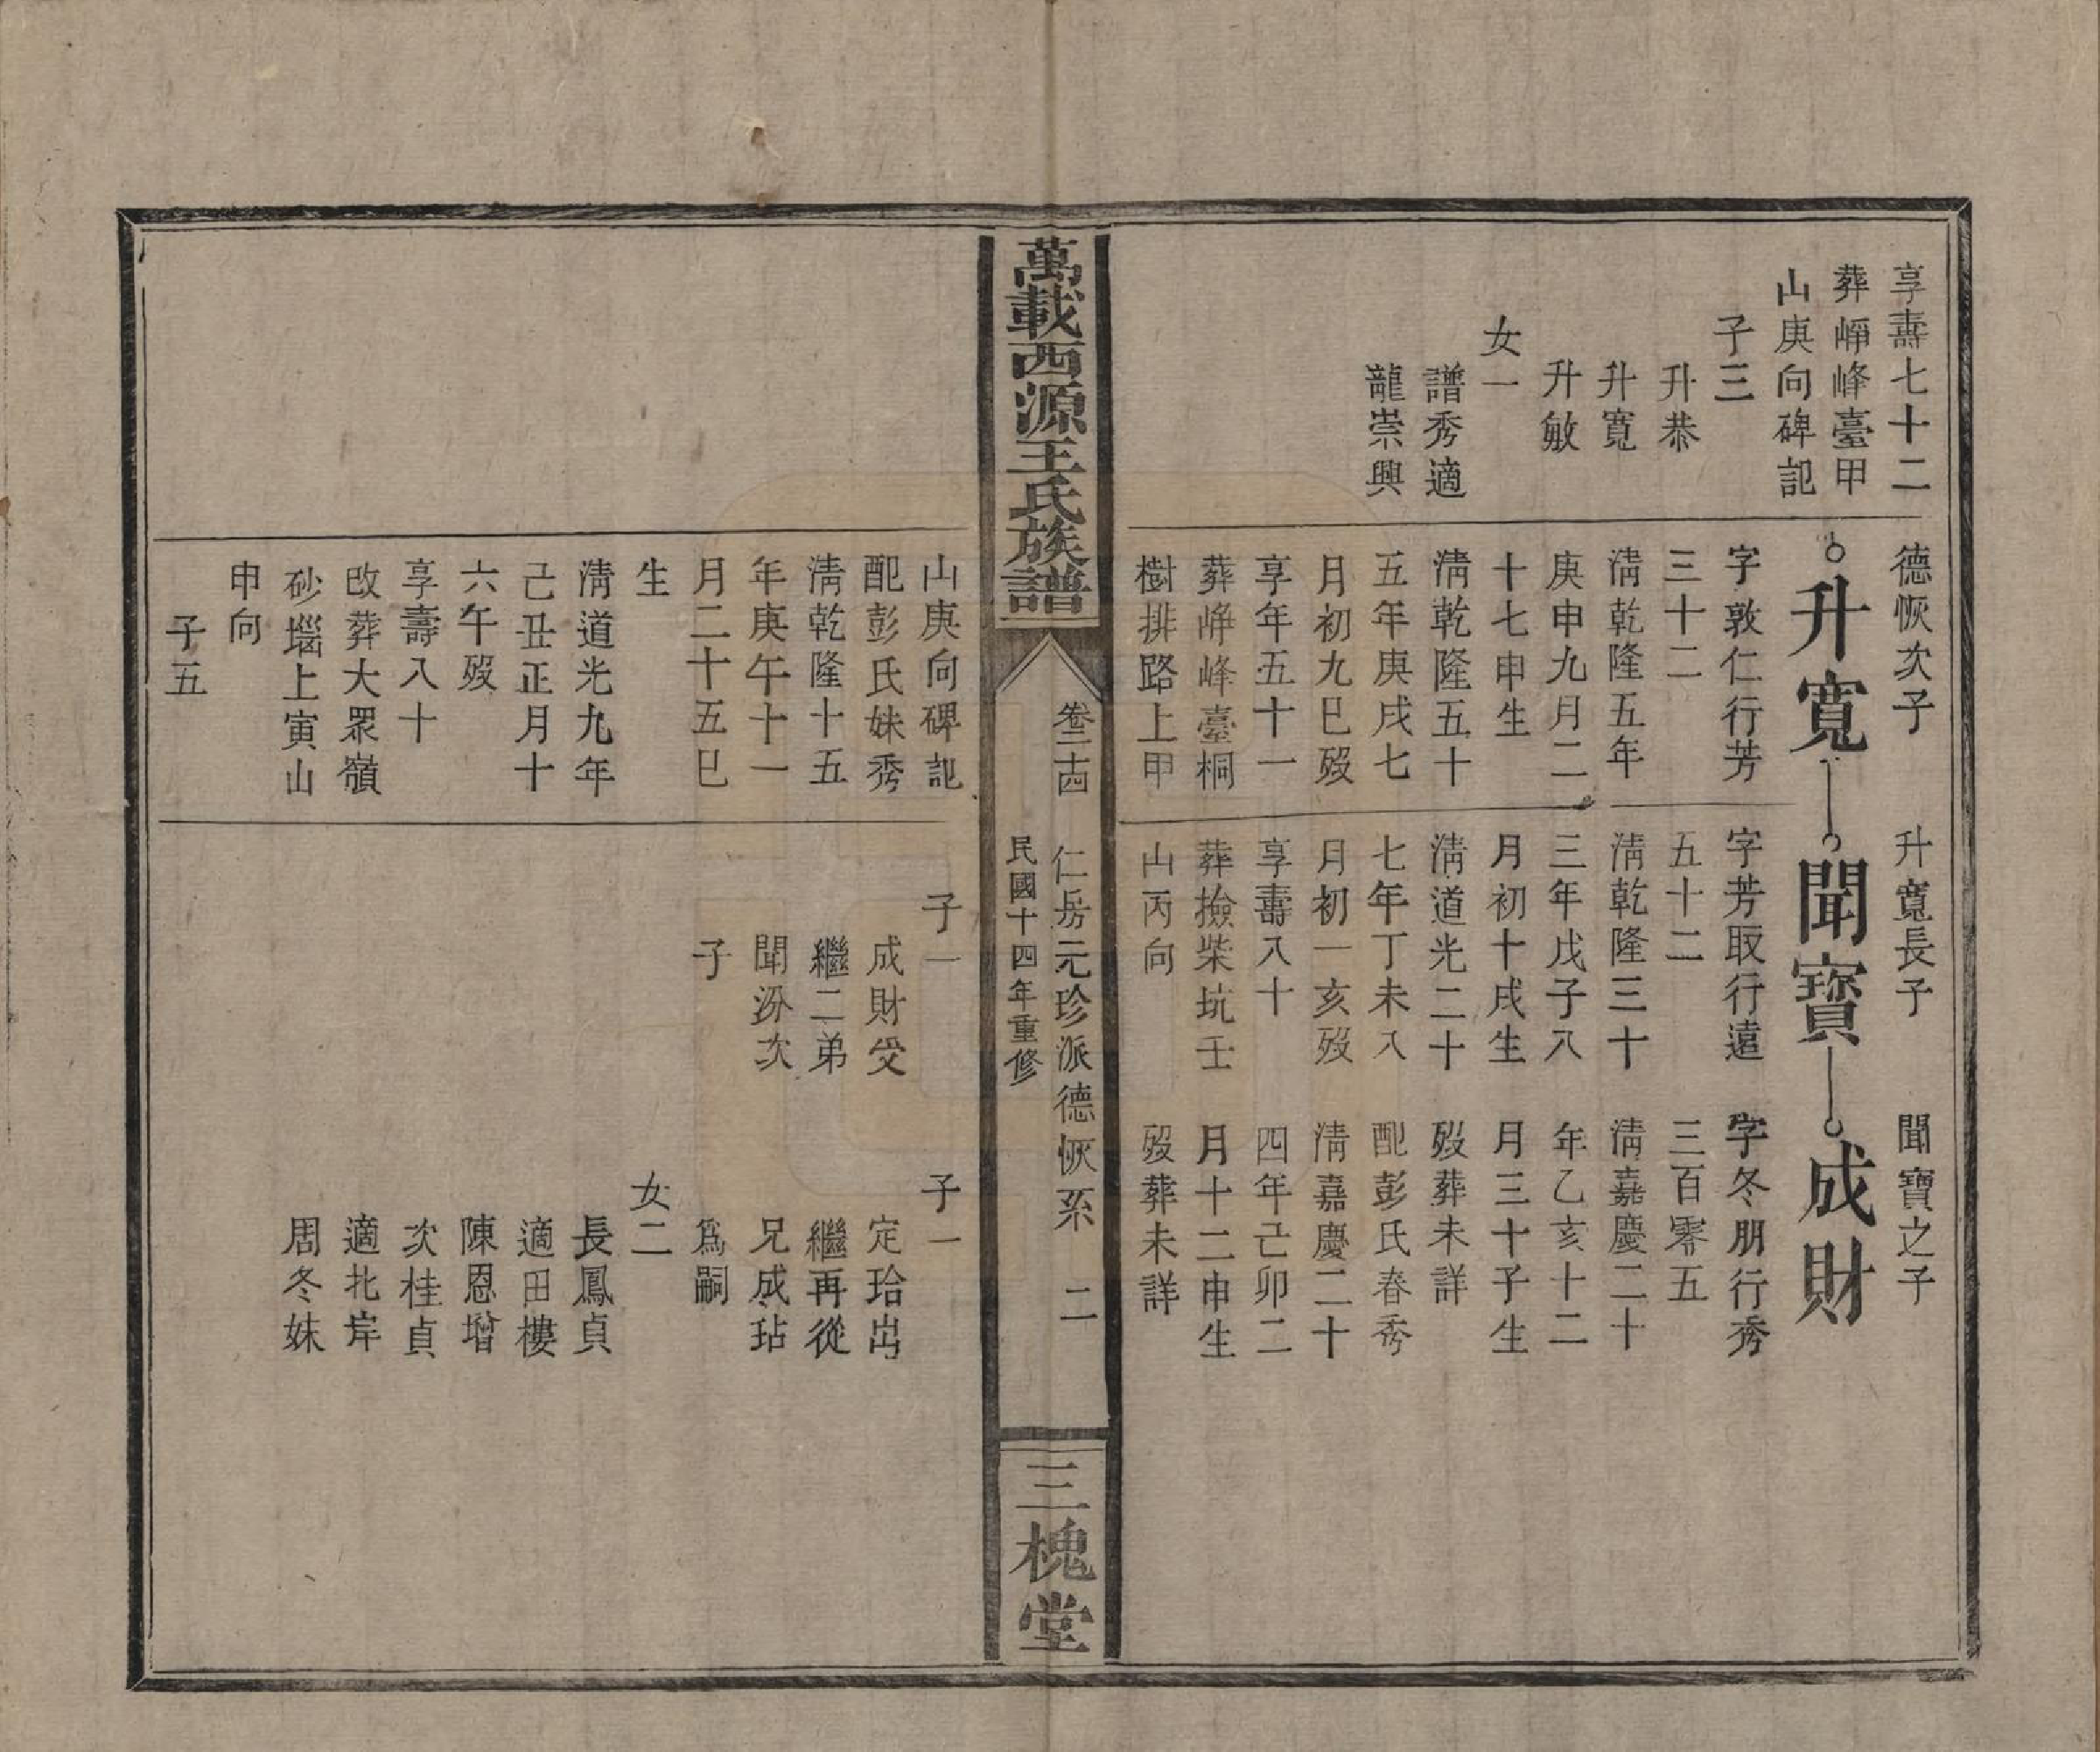 享壽七十二
葬崢峰臺甲
山庚向碑記
子三
升恭
升寬
升敏
女一
譜秀適
龍崇興
德恢次子
升寬
字敦仁行芳
三十二
淸乾隆五年
庚申九月二
十七申生
淸乾隆五十
五年庚戌七
月初九巳歿
享年五十一
葬崢峰臺桐
樹排路上甲
升寬長子
聞寶
字芳取行遠
五十二
淸乾隆三十
三年戊子八
月初十戌生
淸道光二十
七年丁未八
月初一亥歿
享壽八十
葬撿柴坑壬
山丙向
聞寶之子
成財
字冬朋行秀
三百零五
淸嘉慶二十
年乙亥十二
月三十子生
歿葬未詳
配彭氏春秀
淸嘉慶二十
四年己卯二
月十二申生
歿葬未詳
萬載西源王氏族譜
卷二十四
仁房元珍派德恢系 二
民國十四年重修
三槐堂
山庚向碑記
配彭氏妹秀
淸乾隆十五
年庚午十一
月二十五巳
生
淸道光九年
己丑正月十
六午歿
享壽八十
改葬大眾嶺
砂墈上寅山
申向
子五
子一
成財受
繼二弟
聞汾次
子
子一
定珨出
繼再從
兄成玷
爲嗣
女二
長鳳貞
適田樓
陳恩增
次桂貞
適北岸
周冬妹